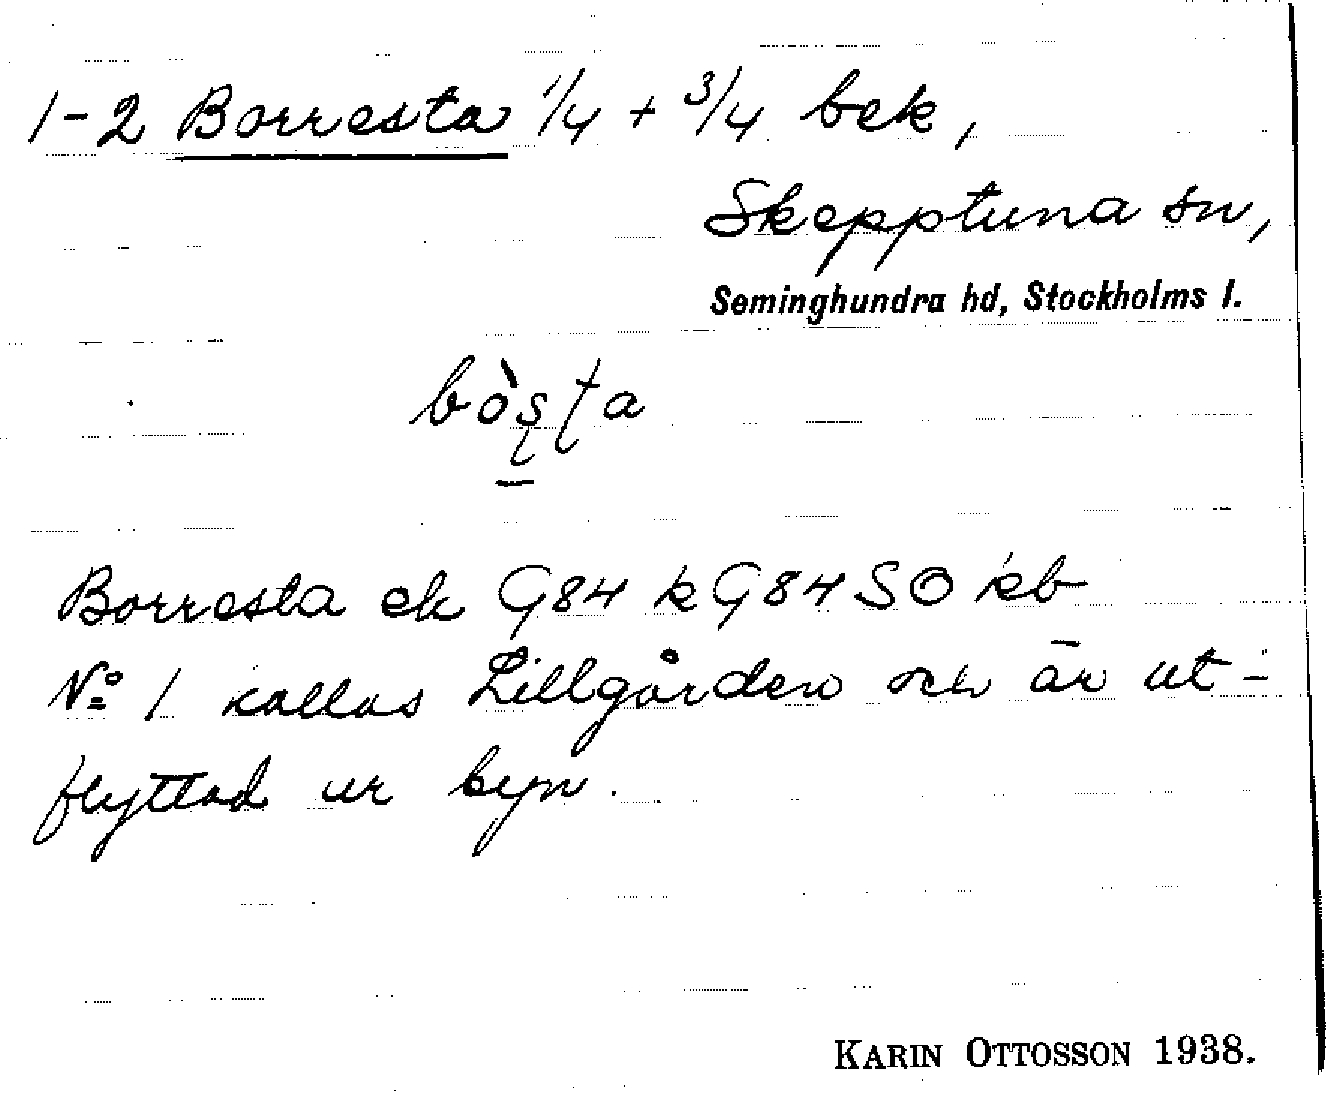 1-2 Borresta 1/4 + 3/4 bek,
Skepptuna sn,
Seminghundra hd, Stockholms l.
bòʂʈa
Borresta ek G84 k G84 SO kb
No 1 kallas Lillgården och är ut-
flyttad ur byn.
KARIN OTTOSSON 1938.